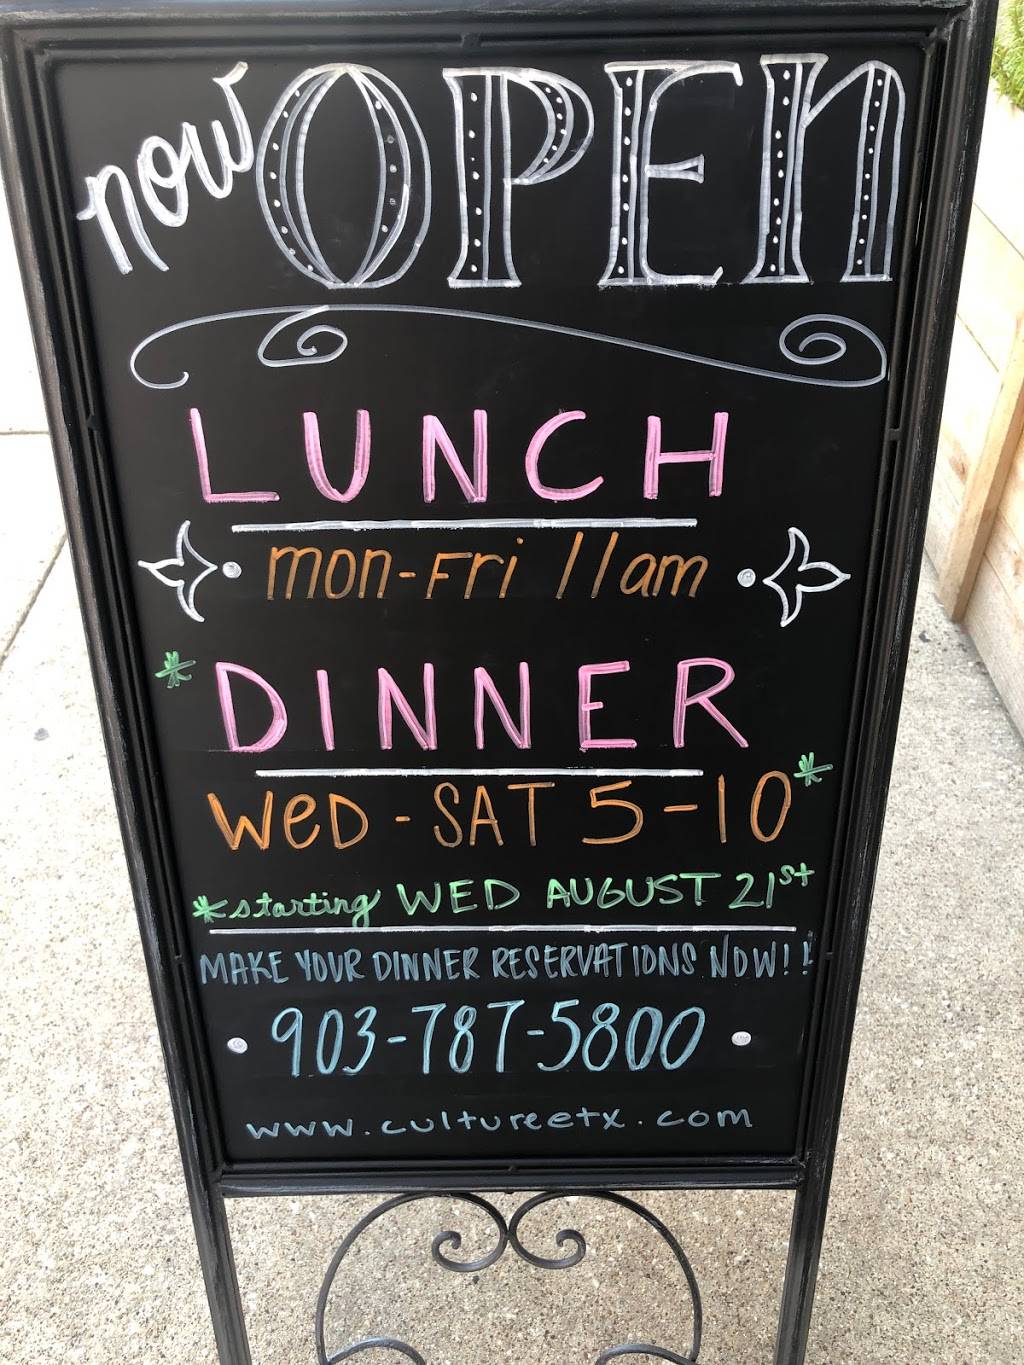 now OPEN
LUNCH
mon-Fri 11am
*DINNER
WeD - SAT 5-10*
*starting WED AUGUST 21st
MAKE YOUR DINNER RESERVATIONS NOW!!
903-787-5800
www.cultureetx.com